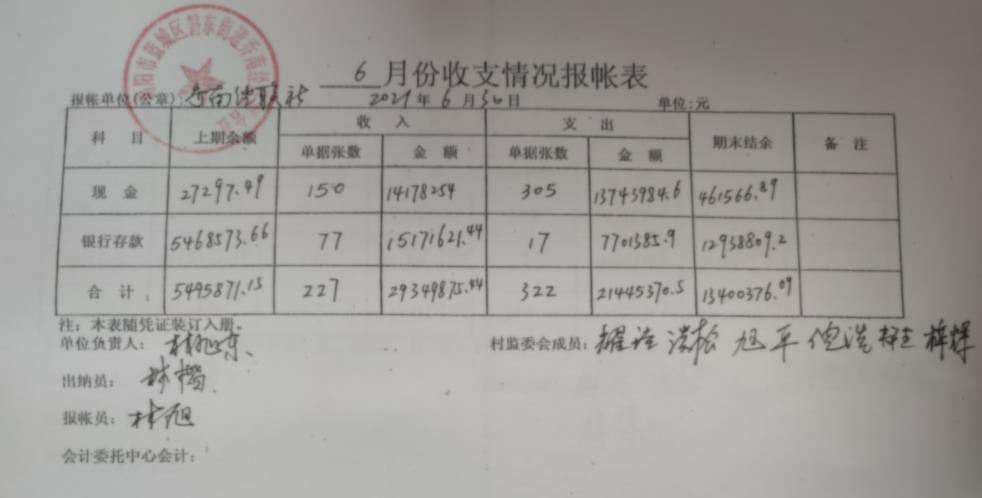 6月份收支情况报帐表
报帐单位(公章): 乔南经联社 2021年6月30日 单位:元
科 目 上期余额 收 入 支 出 期末结余 备 注
单据张数 金 额 单据张数 金 额
现 金 27297.49 150 14178254 305 13743984.6 461566.89
银行存款 5468573.66 77 15171621.44 17 7701385.9 12938809.2
合 计 5495871.15 227 29349875.44 322 21445370.5 13400376.09
注: 本表随凭证装订入册。
单位负责人: 村监委会成员:
出纳员:
报帐员: 林旭
会计委托中心会计: